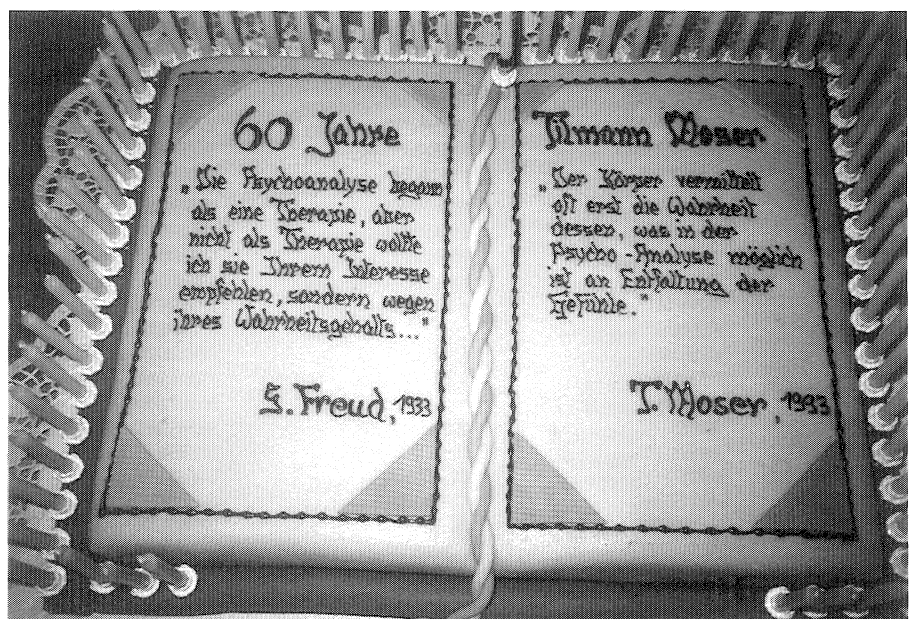 60 Jahre
„Die Psychoanalyse begann
als eine Therapie, aber
nicht als Therapie wollte
ich sie Ihrem Interesse
empfehlen, sondern wegen
ihres Wahrheitsgehalts..."
S. Freud, 1933
Tilmann Moser
„Der Körper vermittelt
oft erst die Wahrheit
dessen, was in der
Psycho-Analyse möglich
ist an Entfaltung der
Gefühle."
T. Moser, 1993